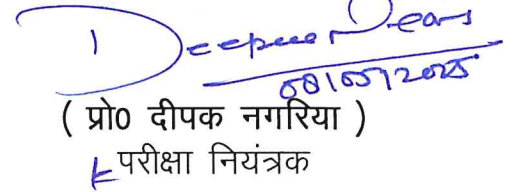 08/05/2025
( प्रो0 दीपक नगरिया )
परीक्षा नियंत्रक